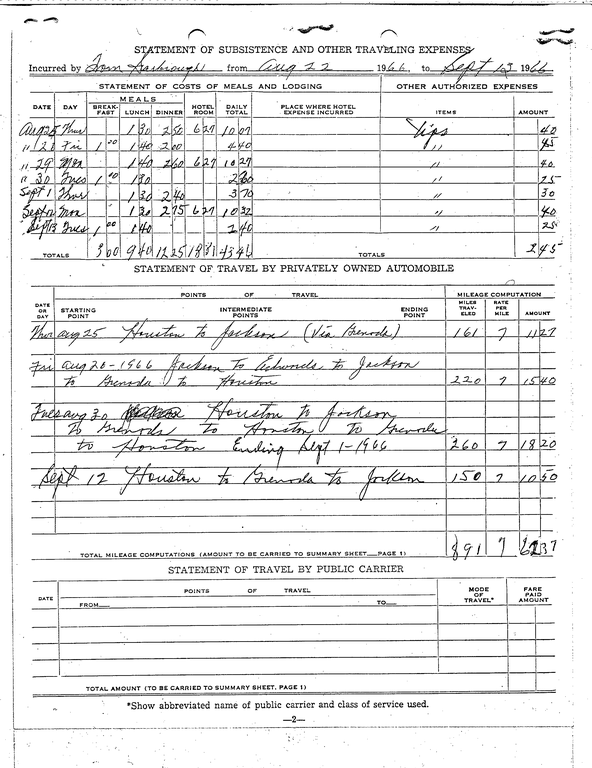 STATEMENT OF SUBSISTENCE AND OTHER TRAVELING EXPENSES
Incurred by Tom Scarbrough from Aug 22 1966, to Sept 13 1966
STATEMENT OF COSTS OF MEALS AND LODGING OTHER AUTHORIZED EXPENSES
MEALS
DATE DAY BREAK-FAST LUNCH DINNER HOTEL ROOM DAILY TOTAL PLACE WHERE HOTEL EXPENSE INCURRED ITEMS AMOUNT
Aug 25 Thur 1 30 2 50 6 27 10 07 Tips 40
" Fri 1 00 1 40 2 00 4 40 " 45
" 29 Mon 1 40 2 60 6 27 10 27 " 40
" 30 Tues 1 00 1 30 " 25
Sept 1 Thur 1 30 2 40 3 70 " 30
Sept 12 Mon 1 30 2 75 6 27 10 32 " 40
Sept 13 Tues 1 00 1 40 2 40 " 25
TOTALS 3 00 9 40 12 25 18 81 43 46 TOTALS 2 45
STATEMENT OF TRAVEL BY PRIVATELY OWNED AUTOMOBILE
POINTS OF TRAVEL MILEAGE COMPUTATION
DATE OR DAY STARTING POINT INTERMEDIATE POINTS ENDING POINT MILES TRAV-ELED RATE PER MILE AMOUNT
Thur Aug 25 Houston to Jackson (Via Grenada) 161 7 11 27
Fri Aug 26-1966 Jackson to Edwards to Jackson
to Grenada to Houston 220 7 15 40
Tues Aug 30 Houston to Jackson
to Grenada to Houston to Grenada
to Houston Ending Sept 1-1966 260 7 18 20
Sept 12 Houston to Grenada to Jackson 150 7 10 50
TOTAL MILEAGE COMPUTATIONS (AMOUNT TO BE CARRIED TO SUMMARY SHEET PAGE 1) 891 7 62 37
STATEMENT OF TRAVEL BY PUBLIC CARRIER
DATE POINTS OF TRAVEL MODE OF TRAVEL* FARE PAID AMOUNT
FROM TO
TOTAL AMOUNT (TO BE CARRIED TO SUMMARY SHEET, PAGE 1)
*Show abbreviated name of public carrier and class of service used.
—2—